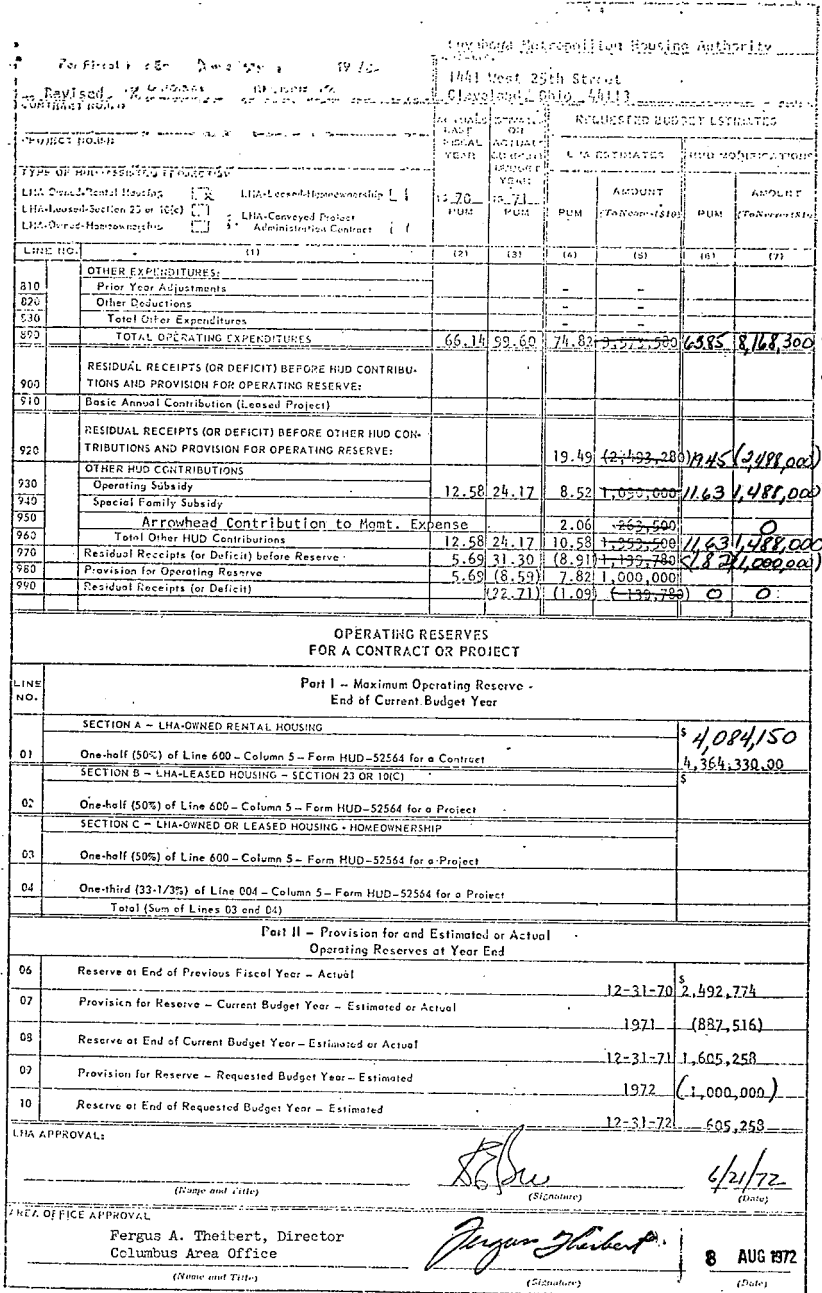 Cuyahoga Metropolitan Housing Authority
For Fiscal Year
1441 West 25th Street
Revised
Cleveland, Ohio 44113
REQUESTED BUDGET ESTIMATES
LHA ESTIMATES HUD MODIFICATIONS
TYPE OF HUD-ASSISTED
LHA-Owned-Rental Housing LHA-Leased-Homeownership
LHA-Leased-Section 23 or 10(c) LHA-Conveyed Project
LHA-Owned-Homeownership Administration Contract
1970 1971 AMOUNT AMOUNT
PUM PUM PUM (To Nearest $10) PUM
LINE NO. (1) (2) (3) (4) (5) (6) (7)
OTHER EXPENDITURES:
810 Prior Year Adjustments - -
820 Other Deductions - -
830 Total Other Expenditures - -
890 TOTAL OPERATING EXPENDITURES 66.14 99.60 74.82 9,573,580 63.85 8,168,300
RESIDUAL RECEIPTS (OR DEFICIT) BEFORE HUD CONTRIBU-
900 TIONS AND PROVISION FOR OPERATING RESERVE:
910 Basic Annual Contribution (Leased Project)
RESIDUAL RECEIPTS (OR DEFICIT) BEFORE OTHER HUD CON-
920 TRIBUTIONS AND PROVISION FOR OPERATING RESERVE: 19.49 (2,493,280) 19.45 (2,488,000)
OTHER HUD CONTRIBUTIONS
930 Operating Subsidy 12.58 24.17 8.52 1,090,000 11.63 1,488,000
940 Special Family Subsidy
950 Arrowhead Contribution to Mgmt. Expense 2.06 263,500 0
960 Total Other HUD Contributions 12.58 24.17 10.58 1,353,500 11.63 1,488,000
970 Residual Receipts (or Deficit) before Reserve 5.69 31.30 (8.91) 1,139,780 (7.82) (1,000,000)
980 Provision for Operating Reserve 5.69 (8.59) 7.82 1,000,000
990 Residual Receipts (or Deficit) (22.71) (1.09) (139,780) 0 0
OPERATING RESERVES
FOR A CONTRACT OR PROJECT
LINE NO. Part I – Maximum Operating Reserve -
End of Current Budget Year
SECTION A – LHA-OWNED RENTAL HOUSING $ 4,084,150
01 One-half (50%) of Line 600 – Column 5 – Form HUD-52564 for a Contract 4,364,330.00
SECTION B – LHA-LEASED HOUSING – SECTION 23 OR 10(C) $
02 One-half (50%) of Line 600 – Column 5 – Form HUD-52564 for a Project
SECTION C – LHA-OWNED OR LEASED HOUSING - HOMEOWNERSHIP
03 One-half (50%) of Line 600 – Column 5 – Form HUD-52564 for a Project
04 One-third (33-1/3%) of Line 004 – Column 5 – Form HUD-52564 for a Project
Total (Sum of Lines 03 and 04)
Part II – Provision for and Estimated or Actual
Operating Reserves at Year End
06 Reserve at End of Previous Fiscal Year – Actual 12-31-70 $ 2,492,774
07 Provision for Reserve – Current Budget Year – Estimated or Actual 1971 (887,516)
08 Reserve at End of Current Budget Year – Estimated or Actual 12-31-71 1,605,258
09 Provision for Reserve – Requested Budget Year – Estimated 1972 (1,000,000)
10 Reserve at End of Requested Budget Year – Estimated 12-31-72 605,258
LHA APPROVAL:
6/21/72
(Name and Title) (Signature) (Date)
AREA OFFICE APPROVAL
Fergus A. Theibert, Director
Columbus Area Office Fergus Theibert 8 AUG 1972
(Name and Title) (Signature) (Date)